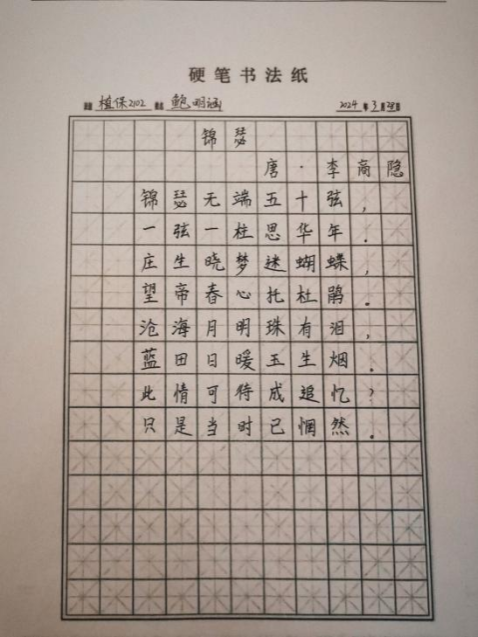 硬笔书法纸
植保2102 鲍明涵 2024年3月28日
锦瑟
唐·李商隐
锦瑟无端五十弦，
一弦一柱思华年.
庄生晓梦迷蝴蝶，
望帝春心托杜鹃.
沧海月明珠有泪，
蓝田日暖玉生烟.
此情可待成追忆?
只是当时已惘然.